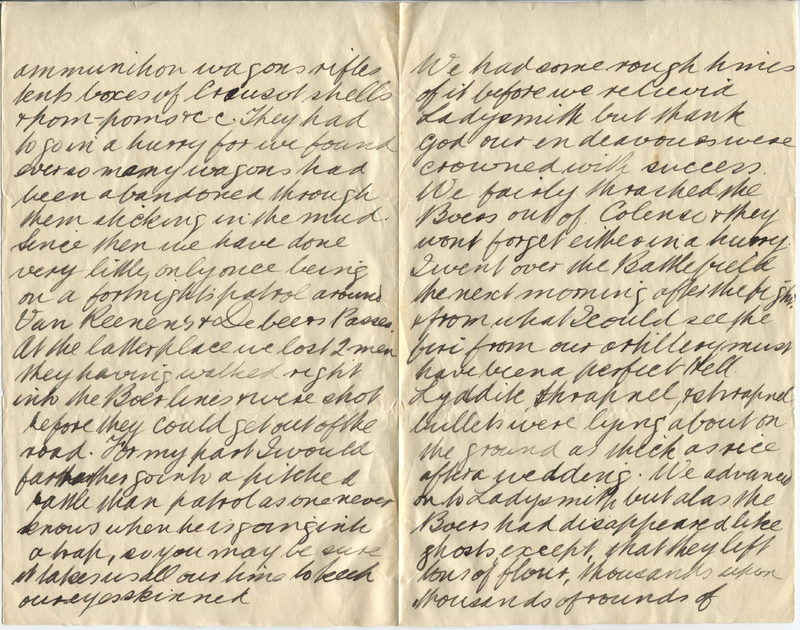 ammunition wagons rifles
tents boxes of Creusot shells
& pom-poms &c &c. They had
to go in a hurry for we found
ever so many wagons had
been abandoned through
them sticking in the mud.
Since then we have done
very little, only once being
on a fortnights patrol around
Van Reenen's & De beers Passes.
At the latter place we lost 2 men
they having walked right
into the Boer lines & were shot
before they could get out of the
road. For my part I would
far rather go into a pitched
battle than patrol as one never
knows when he is going into
a trap, so you may be sure
it takes us all our time to keek
our eyes skinned
We had some rough times
of it before we relievid
Ladysmith but thank
God our endeavours were
crowned with success.
We fairly thrashed the
Boers out of Colenso & they
wont forget either in a hurry.
I went over the Battlefield
the next morning after the fight
& from what I could see the
firi from our artillery must
have been a perfect Hell.
Lyddite shrapnel, & shrapnel
bullets were lying about on
the ground as thick as rice
after a wedding. We advanced
on to Ladysmith but alas the
Boers had disappeared like
ghosts except, that they left
tons of flour, thousands upon
thousands of rounds of